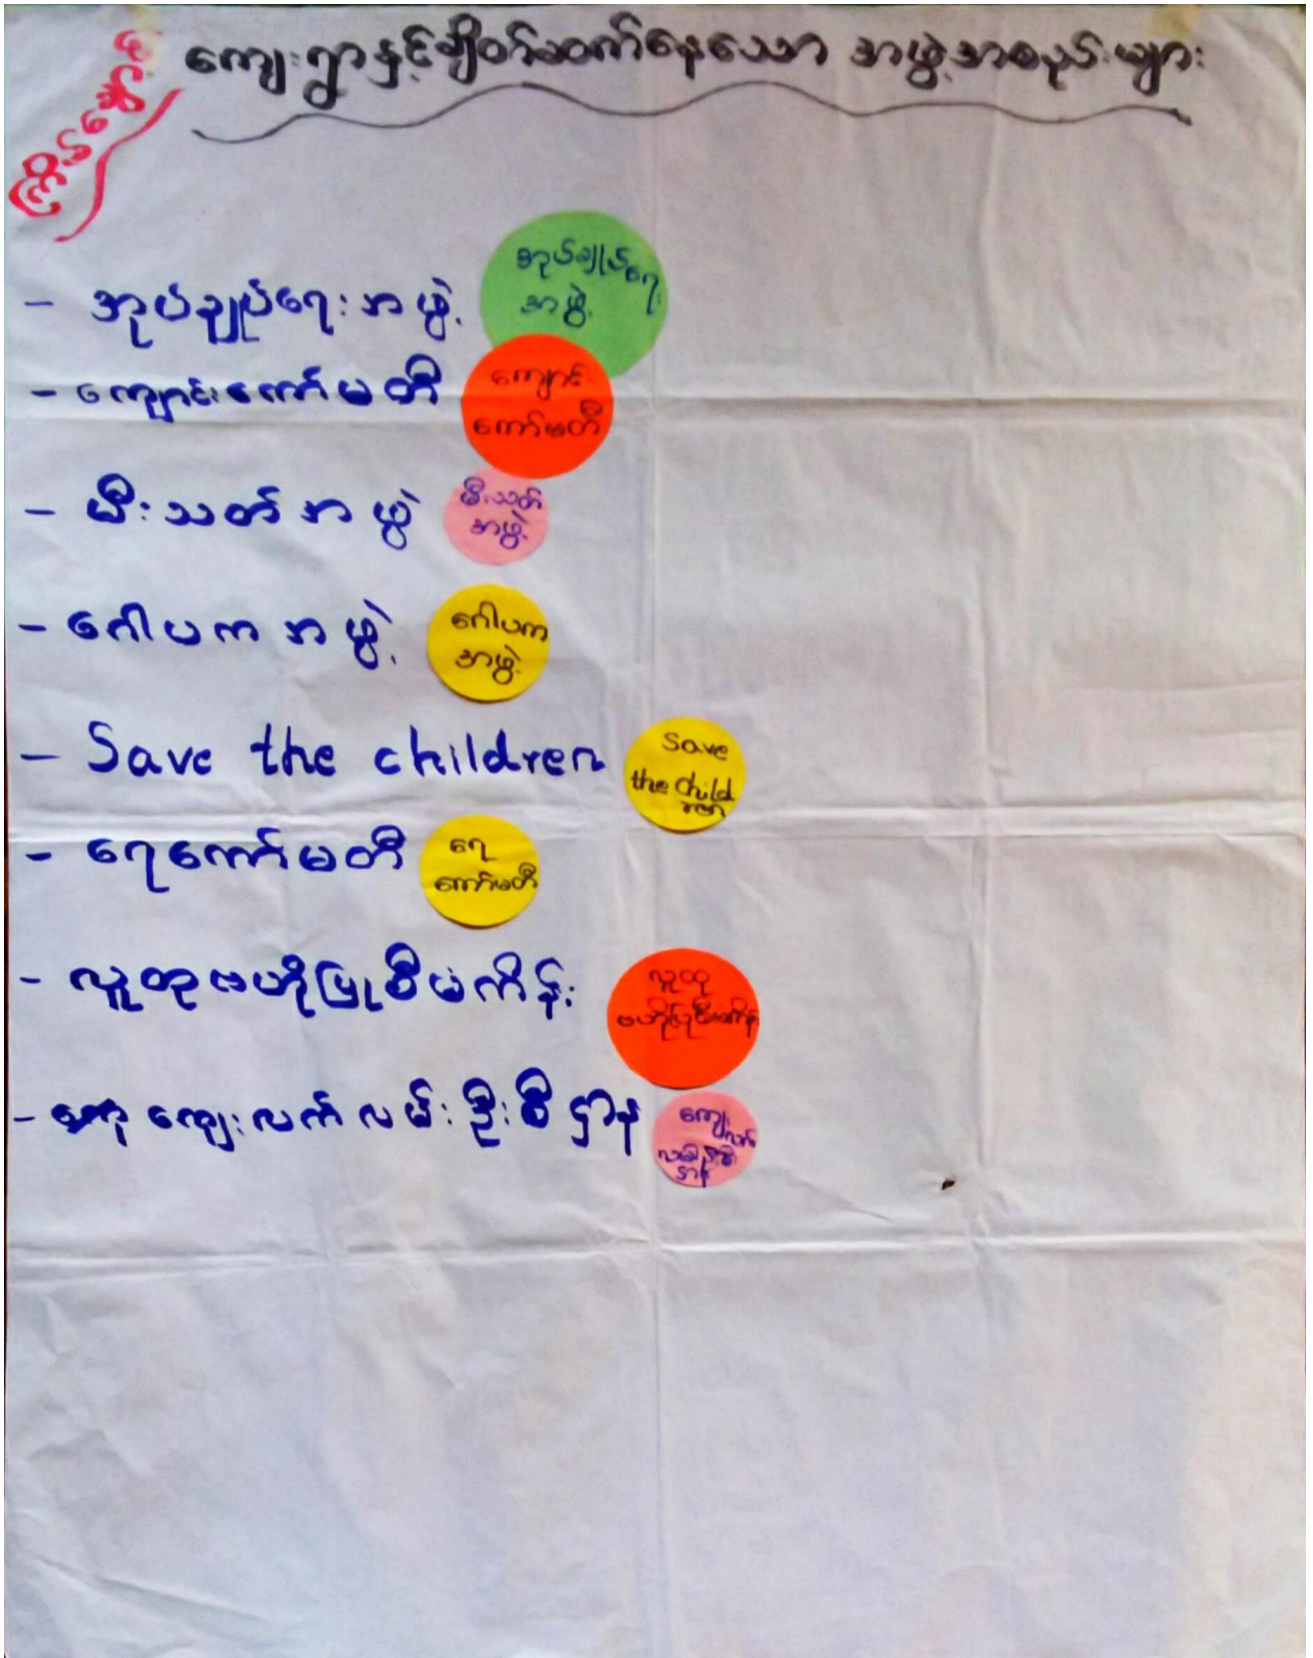 ကျေးရွာနှင့်ချိတ်ဆက်နေသော အဖွဲ့အစည်းများ
- အုပ်ချုပ်ရေးအဖွဲ့
အုပ်ချုပ်ရေး
အဖွဲ့
- ကျောင်းကော်မတီ
ကျောင်း
ကော်မတီ
- မီးသတ်အဖွဲ့
မီးသတ်
အဖွဲ့
- ဂေါပကအဖွဲ့
ဂေါပက
အဖွဲ့
- Save the children
Save
the Child
ren
- ရေကော်မတီ
ရေ
ကော်မတီ
- လူထုဗဟိုပြုစီမံကိန်း
လူထု
ဗဟိုပြုစီမံကိန်း
- ကျေးလက်လမ်းဦးစီဌာန
ကျေး
လက်
လမ်းဦးစီ
ဌာန